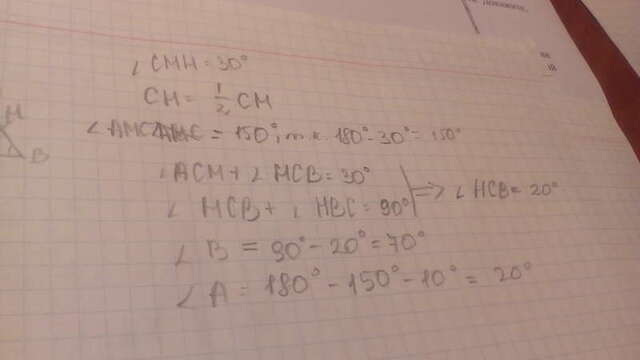 ∠CMH = 30°
CH = 1/2 CM
∠AMC = 150°, т.к. 180° - 30° = 150°
∠ACM + ∠HCB = 30°
∠HCB + ∠HBC = 90° ⇒ ∠HCB = 20°
∠B = 90° - 20° = 70°
∠A = 180° - 150° - 10° = 20°
H
B